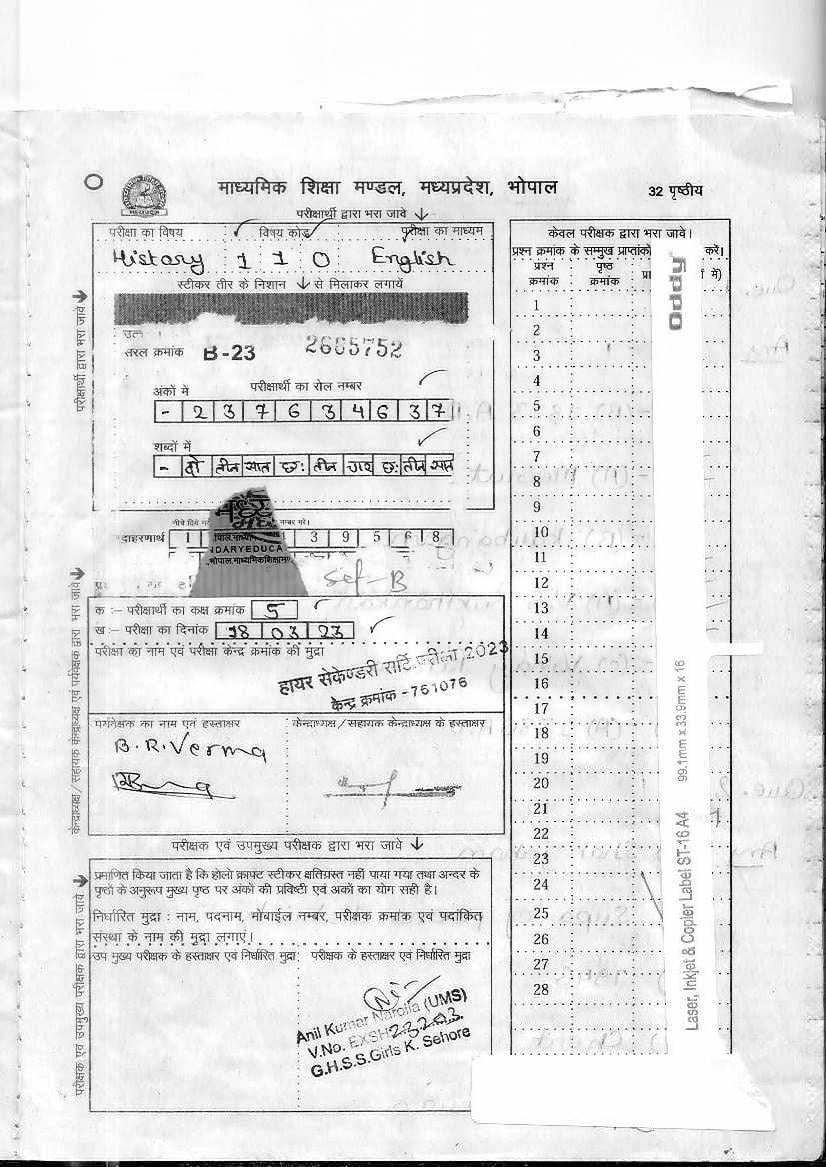 माध्यमिक शिक्षा मण्डल, मध्यप्रदेश, भोपाल
32 पृष्ठीय
परीक्षार्थी द्वारा भरा जावे ↓
परीक्षा का विषय विषय कोड परीक्षा का माध्यम
History 1 1 0 English
स्टीकर तीर के निशान ↓ से मिलाकर लगायें
सरल क्रमांक B-23 2665752
अंकों में परीक्षार्थी का रोल नम्बर
- 2 3 7 6 3 4 6 3 7
शब्दों में
- दो तीन सात छः तीन चार छः तीन सात
उदाहरणार्थ 1 3 9 5 6 8
NDARYEDUCA
Set-B
क :– परीक्षार्थी का कक्ष क्रमांक 5
ख :– परीक्षा का दिनांक 18 03 23
परीक्षा का नाम एवं परीक्षा केन्द्र क्रमांक की मुद्रा
हायर सेकेण्डरी सार्टि. परीक्षा, 2023
केन्द्र क्रमांक - 761076
पर्यवेक्षक का नाम एवं हस्ताक्षर
केन्द्राध्यक्ष / सहायक केन्द्राध्यक्ष के हस्ताक्षर
B.R.Verma
परीक्षक एवं उपमुख्य परीक्षक द्वारा भरा जावे ↓
प्रमाणित किया जाता है कि होलो क्राफ्ट स्टीकर क्षतिग्रस्त नहीं पाया गया तथा अन्दर के
पृष्ठों के अनुरूप मुख्य पृष्ठ पर अंकों की प्रविष्टी एवं अंकों का योग सही है।
निर्धारित मुद्रा : नाम, पदनाम, मोबाईल नम्बर, परीक्षक क्रमांक एवं पदांकित
संस्था के नाम की मुद्रा लगाएं।
उप मुख्य परीक्षक के हस्ताक्षर एवं निर्धारित मुद्रा
परीक्षक के हस्ताक्षर एवं निर्धारित मुद्रा
Anil Kumar Narolia (UMS)
V.No. EXSH23203
G.H.S.S.Girls K. Sehore
परीक्षार्थी द्वारा भरा जावे
केन्द्राध्यक्ष / सहायक केन्द्राध्यक्ष एवं पर्यवेक्षक द्वारा भरा जावे
परीक्षक एवं उपमुख्य परीक्षक द्वारा भरा जावे
केवल परीक्षक द्वारा भरा जावे।
प्रश्न क्रमांक के सम्मुख प्राप्तांको करें।
प्रश्न पृष्ठ
क्रमांक क्रमांक
1
2
3
4
5
6
7
8
9
10
11
12
13
14
15
16
17
18
19
20
21
22
23
24
25
26
27
28
Oddy
Laser, Inkjet & Copier Label ST-16 A4 99.1mm x 33.9mm x 16